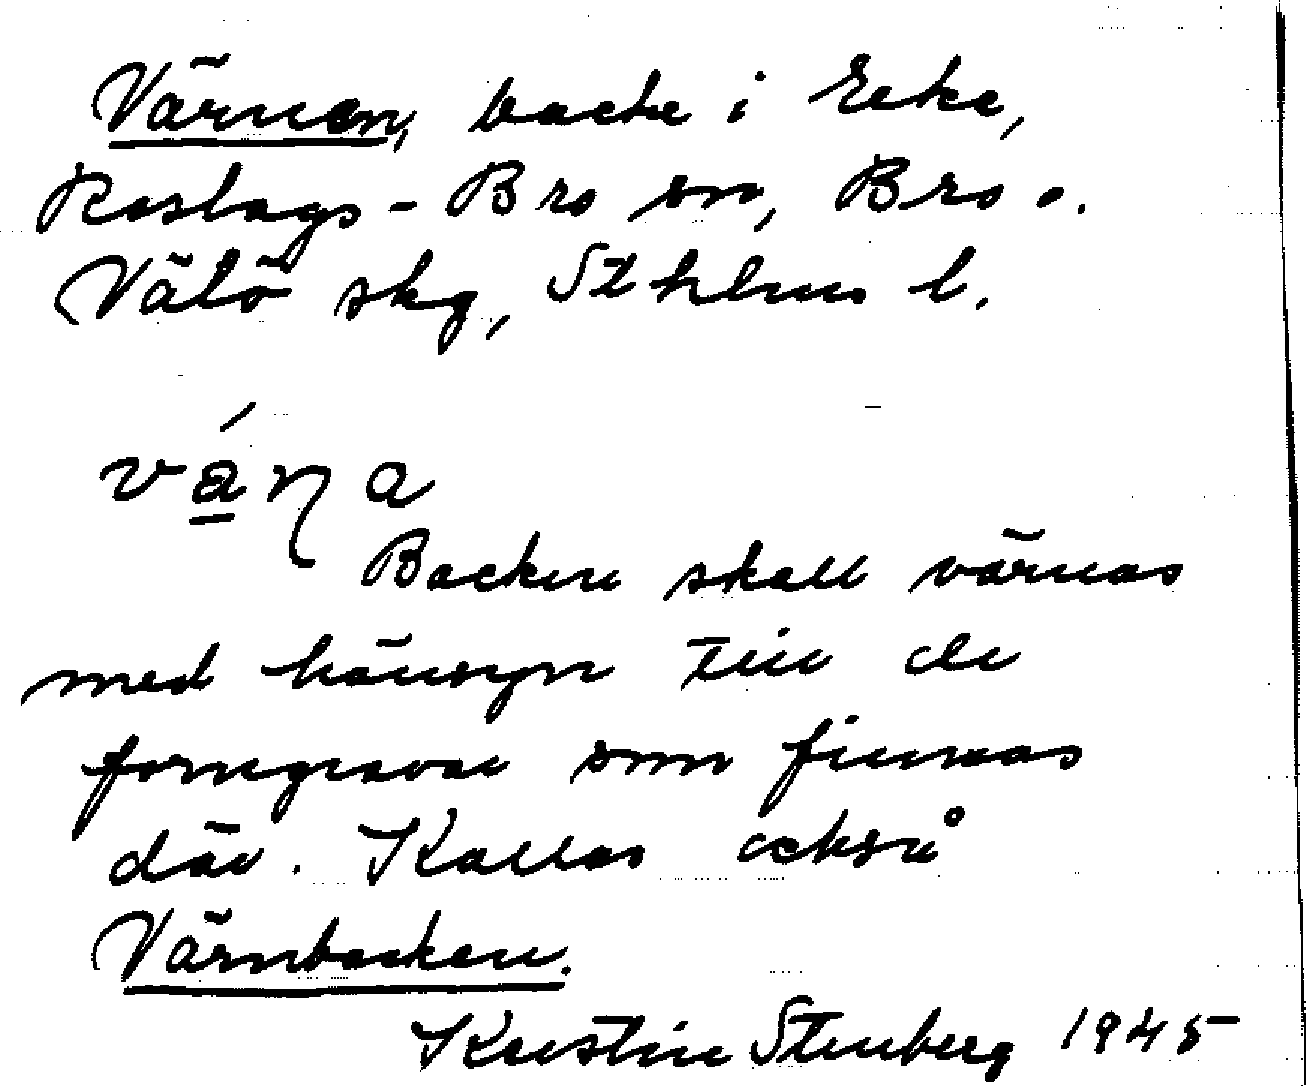 Värnen, backe i Eeke,
Roslags-Bro sn, Bro o.
Vätö skg, Sthlms l.
vá̱ṇa
Backen skall värnas
med hänsyn till de
forngravar som finnas
där. Kallas också
Värnbacken.
Kerstin Stenberg 1945